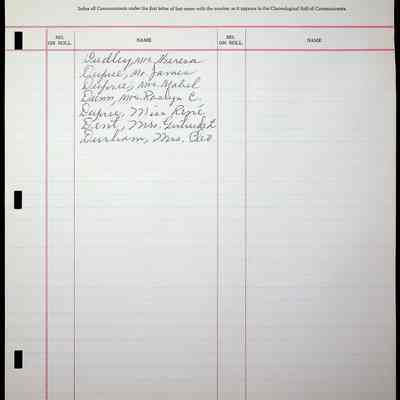 Index all Communicants under the first letter of last name with the number as it appears in the Chronological Roll of Communicants.
NO. ON ROLL NAME NO. ON ROLL NAME
Dudley, Mrs. Theresa
Dupree, Mr. James
Dupree, Mrs. Mabel
Dunn, Mrs. Roslyn C.
Dupree, Miss René
Dent, Mrs. Gertrude L
Durham, Mrs. Cleo